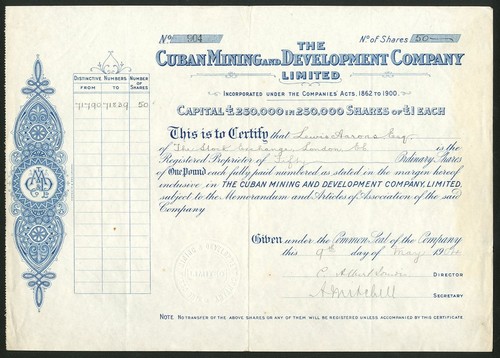 No 904
No of Shares 50
THE
CUBAN MINING AND DEVELOPMENT COMPANY
LIMITED.
INCORPORATED UNDER THE COMPANIES' ACTS, 1862 TO 1900.
CAPITAL £250,000 IN 250,000 SHARES OF £1 EACH
DISTINCTIVE NUMBERS.
NUMBER OF SHARES
FROM
TO
50
This is to Certify that Lewis Aarons Esq
of The Stock Exchange London EC is the
Registered Proprietor of Fifty Ordinary Shares
of One Pound each fully paid numbered as stated in the margin hereof
inclusive in THE CUBAN MINING AND DEVELOPMENT COMPANY, LIMITED,
subject to the Memorandum and Articles of Association of the said
Company
Given under the Common Seal of the Company
this 9th day of May 19
DIRECTOR
A Mitchell
SECRETARY
NOTE NO TRANSFER OF THE ABOVE SHARES OR ANY OF THEM WILL BE REGISTERED UNLESS ACCOMPANIED BY THIS CERTIFICATE